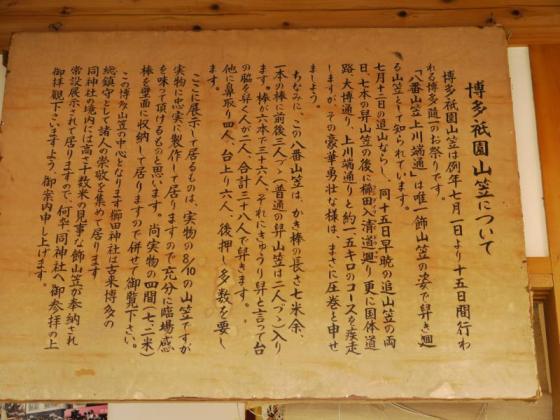 博多祇園山笠について
博多祇園山笠は例年七月一日より十五日間行わ
れる博多随一のお祭りです。
「八番山笠上川端通」は唯一飾山笠の姿で舁き廻
る山笠として知られています。
七月十二日の追山ならし、同十五日早暁の追山笠の両
日、七本の舁山笠の後に櫛田入清道廻り更に国体道
路、大博通り、上川端通りと約一、五キロのコースを疾走
しますが、その豪華勇壮な様は、まさに圧巻と申せ
ましょう。
ちなみに、この八番山笠は、かき棒の長さ七米余、
一本の棒に前後三人づゝ(普通の舁山笠は二人づゝ)入り
ます。棒が六本で三十六人、それにきゅうり舁と言って台
の脇を舁く人が二人、合計三十八人で舁きます。
他に鼻取り四人、台上り六人、後押し多数を要し
ここに展示して居るものは、実物の8/10の山笠ですが
実物に忠実に製作して居りますので充分に臨場感
を味って頂けるものと思います。尚実物の四間(七、二米)
棒を壁面に収納して居りますので併せて御覧下さい。
この博多山笠の中心となります櫛田神社は古来博多の
総鎮守として諸人の崇敬を集めて居ります
同神社の境内には高さ十数米の見事な飾山笠が奉納され
常設展示されて居りますので、何卒同神社へ御参拝の上
御拝観下さいますよう、御案内申し上げます。